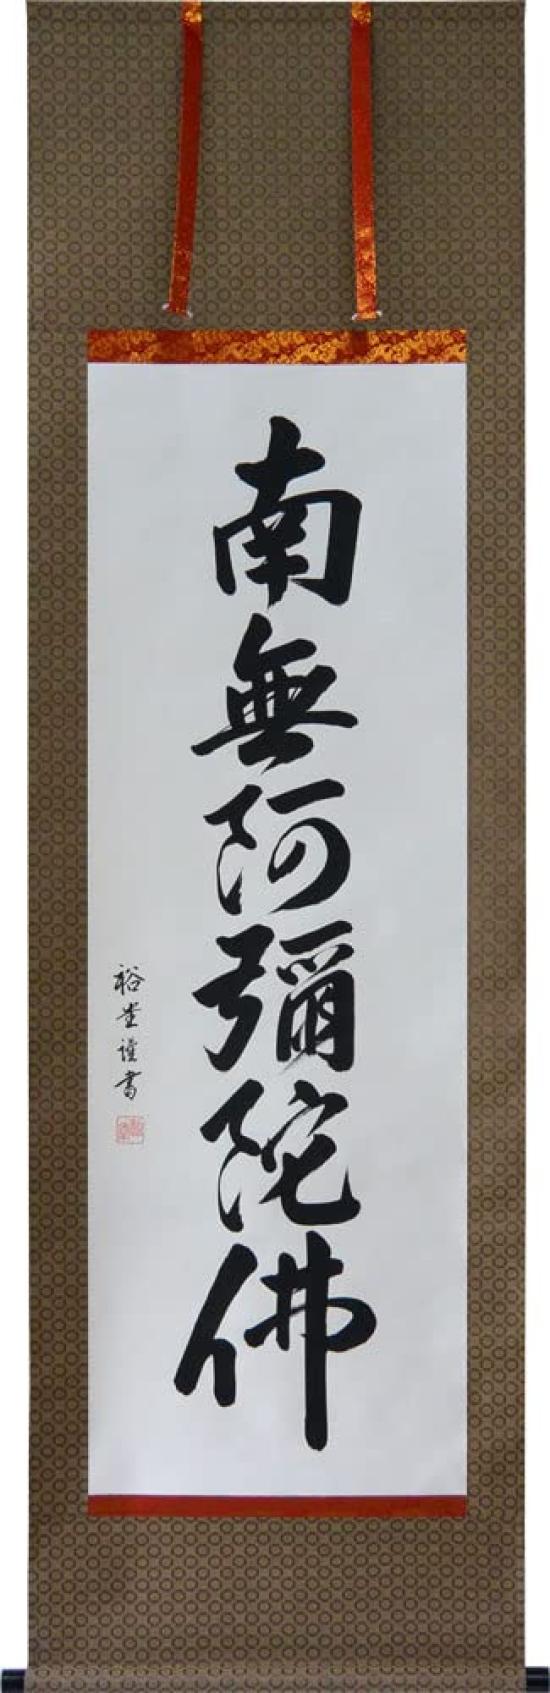 南無阿彌陀佛
裕堂謹書